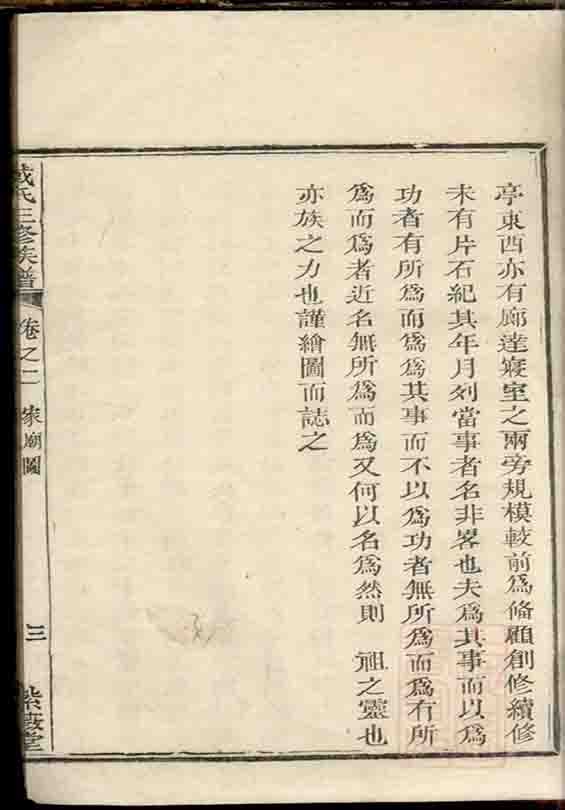 亭東西亦有廊達寢室之兩旁規模較前為俻顧創修續修
未有片石紀其年月列當事者名非畧也夫為其事而以為
功者有所為而為為其事而不以為功者無所為而為有所
為而為者近名無所為而為又何以名為然則　祖之靈也
亦族之力也謹繪圖而誌之
氏三修族譜
卷之二　家廟圖
三
紫薇堂